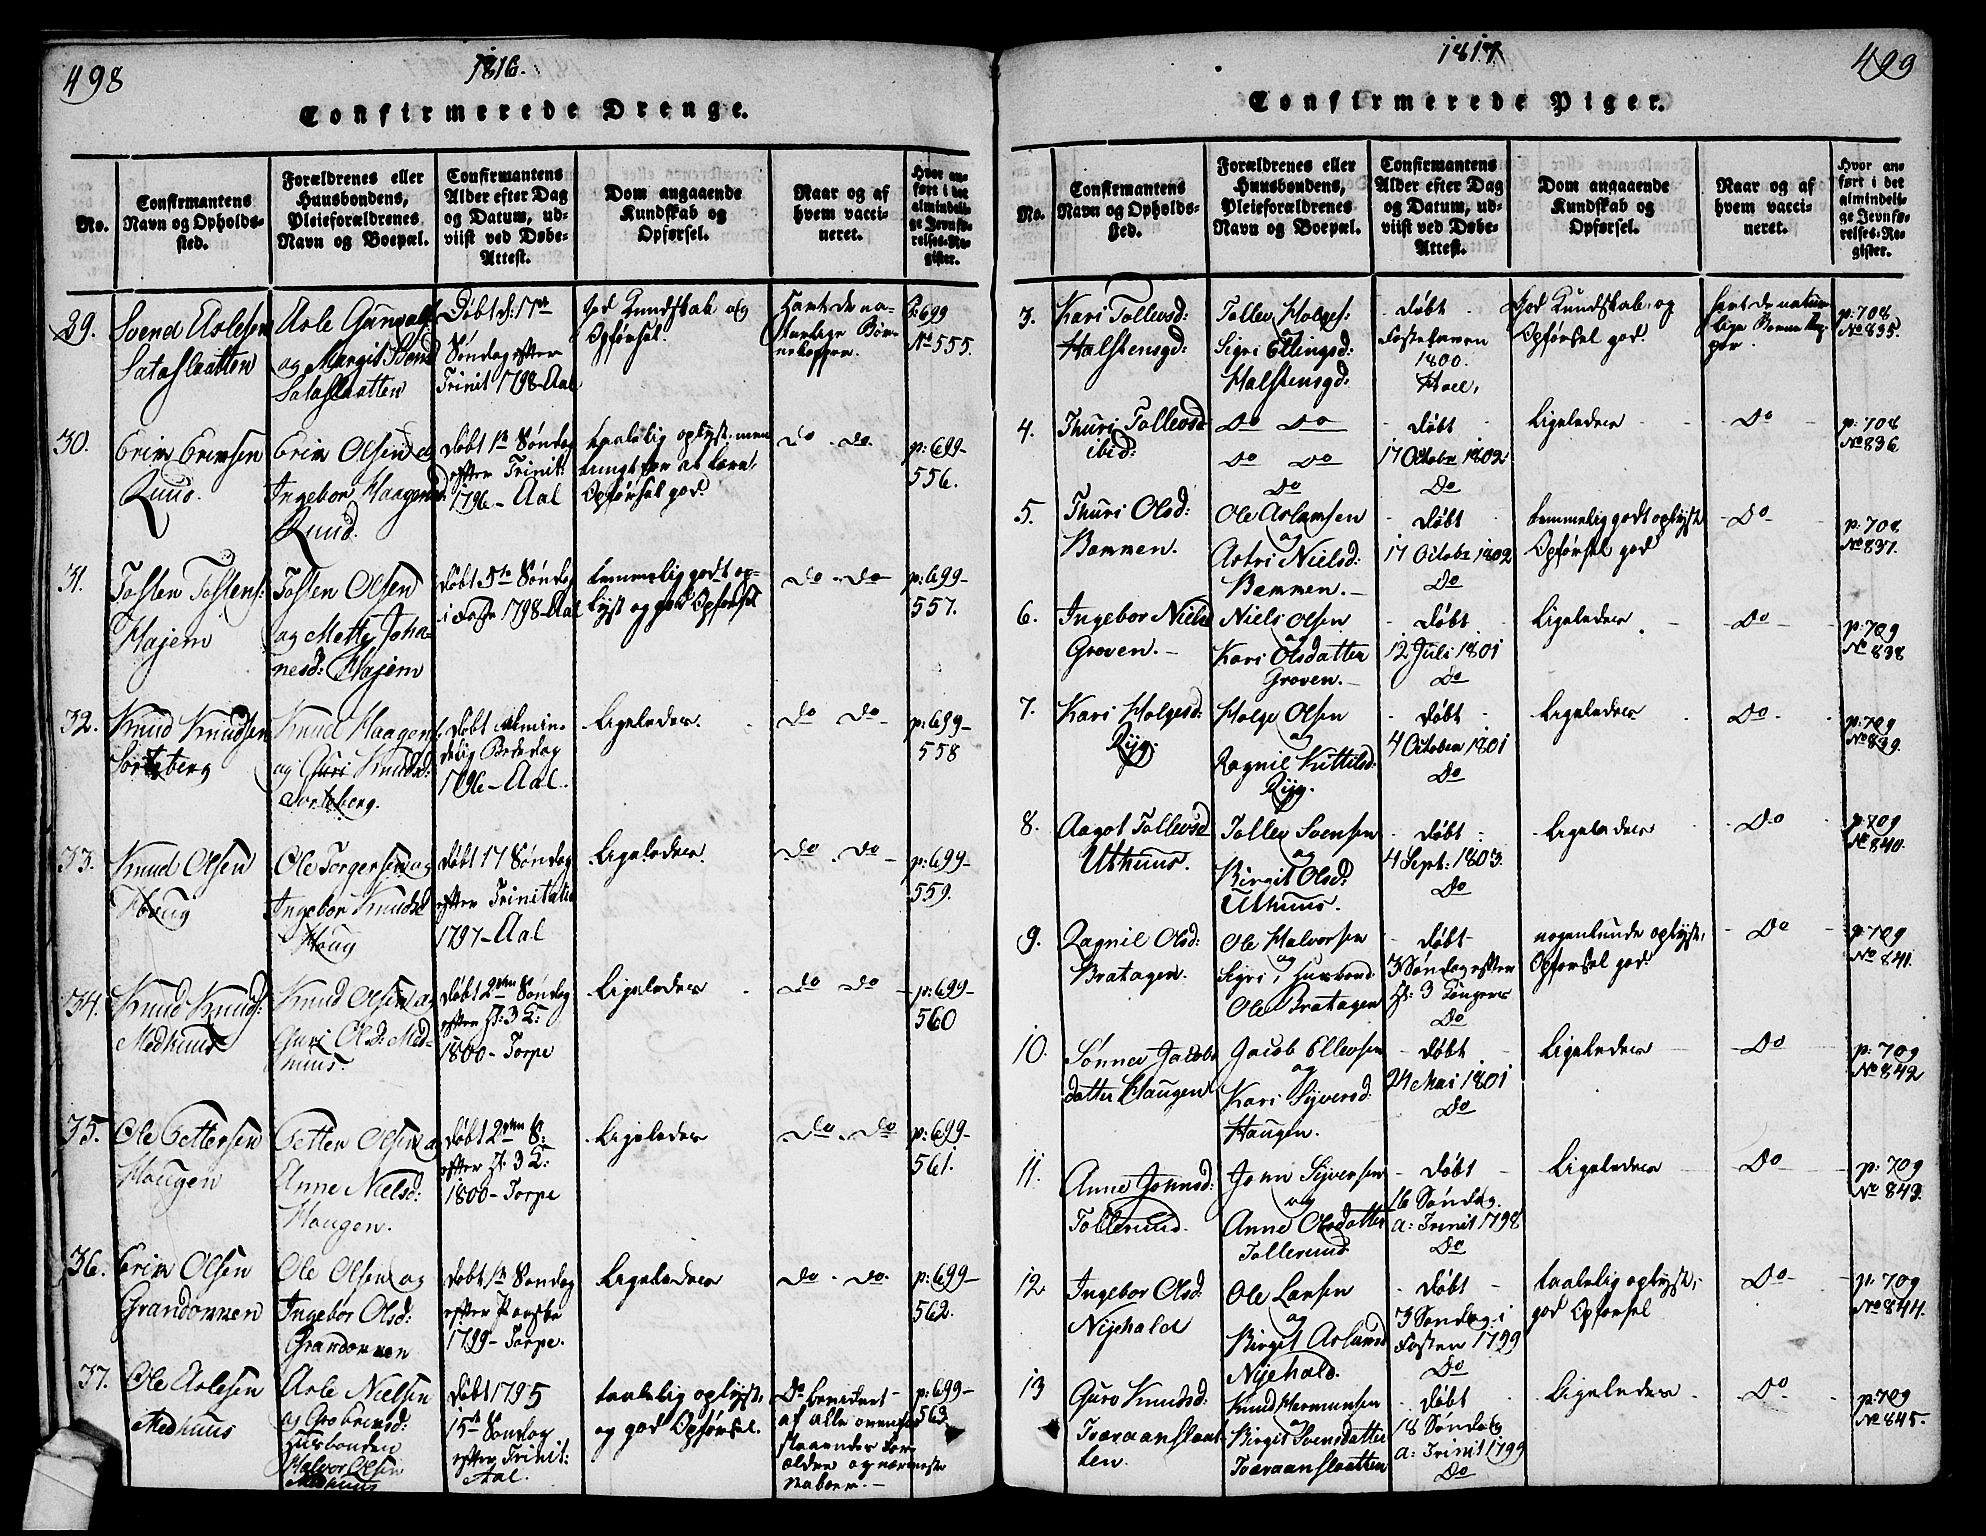 498
1816.
Confirmerede Drenge.
No.
Confirmantens Navn og Opholds-sted.
Forældrenes eller Huusbondens, Pleieforældrenes Navn og Boepæl.
Confirmantens Alder efter Dag og Datum, ud-viist ved Døbe-Attest.
Dom angaaende Kundskab og Opførsel.
Naar og af hvem vacci-neret.
Hvor an-ført i det almindeli-ge Jevnfø-relses-Re-gister.
29.
Svend Aslesen
Sataslaatten
Asle Gunvalds
og Margit Svend
Sataslaatten
Døbt d: 17de
Søndag efter
Trinit 1798-Aal
god Kundskab og
Opførsel.
Havt de na-
turlige Bør-
nekopper.
p: 699
No 555.
30.
Erik Eriksen
Ruud.
Erik Olsen og
Ingebor Haagensd
Ruud.
døbt 1ste Søndag
efter Trinit:
1796- Aal
taalelig oplyst, men
tungt for at lære.
Opførsel god.
do. do.
p: 699-
556.
31.
Tosten Tostens:
Hajem
Tosten Olsen
og Mette Joha-
nesd: Hajem
døbt 5te Søndag
i Faste 1798-Aal
temmelig godt op-
lyst og god Opførsel
do - do
p: 699-
557.
32.
Knud Knudsen
Sorteberg
Knud Haagens
og Guri Knudsd:
Sorteberg.
døbt Almin-
delig Bededag
1796- Aal.
Ligeledes.
do do
p: 699-
558
33.
Knud Olsen
Houg
Ole Torgersen og
Ingebor Knudsd
Houg
døbt 17 Søndag
efter Trinitatis
1797- Aal
Ligeledes.
do. do
p: 699-
559.
34.
Knud Knuds:
Medhuus
Knud Olsen og
Guri Olsd: Med-
huus.
døbt 2den Søndag
efter H: 3 K:
1800- Torpe
Ligeledes
do do
p: 699-
560
35.
Ole Pettersen
Haugen
Petter Olsen og
Anne Nielsd:
Haugen.
døbt 2den S:
efter H: 3 K:
1800- Torpe
Ligeledes
do. do
p: 699-
561.
36.
Erik Olsen
Grandokken
Ole Olsen og
Ingebor Olsd:
Grandokken
døbt 1ste Søndag
efter Paaske
1799- Torpe.
Ligeledes
do. do.
p: 699-
562.
37.
Ole Aslesen
Medhuus
Asle Nielsen
og Gro Eriksd:
Husbonden
Halvor Olsen
Medhuus
døbt 1795
15de Søndag
efter Trinit:
Aal.
taalelig oplyst
og god Opførsel.
Do. bevidnet
af alle ovenfor
staaendes For-
ældre og nærmeste
Naboer.
p: 699-
563.
1817
499
Confirmerede Piger.
No.
Confirmantens Navn og Opholds-sted.
Forældrenes eller Huusbondens, Pleieforældrenes Navn og Boepæl.
Confirmantens Alder efter Dag og Datum, ud-viist ved Døbe-Attest.
Dom angaaende Kundskab og Opførsel.
Naar og af hvem vacci-neret.
Hvor an-ført i det almindeli-ge Jevnfø-relses-Re-gister.
3.
Kari Tollevsd:
Halstensgd:
Tollev Holges:
Sigri Ellingsd:
Halstensgd:
døbt
Fastelavn
1800.
Hoel,
God Kundskab og
Opførsel god.
havt de natur-
lige Børnekop-
per.
p: 708
No 835.
4.
Thuri Tollevsd
ibid:
Do Do
Do Do
Do
døbt
17 Octobr 1802
Do
Ligeledes
Do
p: 708
No 836
5.
Thuri Olsd:
Bømmen.
Ole Aslamsen
og
Astri Nielsd:
Bømmen.
døbt
17 Octobr 1802
Do
temmelig godt oplyst
Opførsel god
Do
p: 708
No 837.
6.
Ingebor Nielsd
Groven.
Niels Olsen
og
Kari Olsdatter
Groven.
døbt
12 Juli 1801
Do
Ligeledes
Do
p: 709
No 838
7.
Kari Holgesd:
Ryg.
Holge Olsen
og
Ragnil Kittilsd:
Ryg.
døbt
4 October 1801
Do
Ligeledes
Do
p: 709
No 839.
8.
Aagot Tollevsd
Uthuus.
Tollev Svensen
og
Birgit Olsd:
Uthuus.
døbt
4 Sept: 1803.
Do
Ligeledes
Do
p. 709
No 840.
9.
Ragnil Olsd:
Bratagen.
Ole Halvorsen
og
Sigri, Husbond
Ole Bratagen
døbt
3 Søndag efter
H: 3 Konger
Do
nogenlunde oplyst,
Opførsel god
Do
p: 709
No 841.
10.
Sønnev Jacobs
datter Haugen
Jacob Ellevsen
og
Kari Syversd:
Haugen.
døbt
24 Mai 1801
Do
Ligeledes
Do
p: 709
No 842
11.
Anne Johnsd:
Tollerund.
John Syversen
og
Anne Olsdatter
Tollerund
døbt
16 Søndag
a: Trinit 1798
Do
Ligeledes
Do
p: 709
No 843.
12
Ingebor Olsd:
Nyehald
Ole Larsen
og
Birgit Aslamsd
Nyehald.
døbt
3 Søndag i
Fasten 1799
Do
taalelig oplyst,
god Opførsel
Do
p: 709
No 844.
13
Guro Knudsd:
Tværaanslaat-
ten.
Knud Hermunsen
og
Birgit Svensdatter
Tværaanslaatten
døbt
18 Søndag
a: Trinit 1799
Do
Ligeledes
Do
p: 709
No 845.